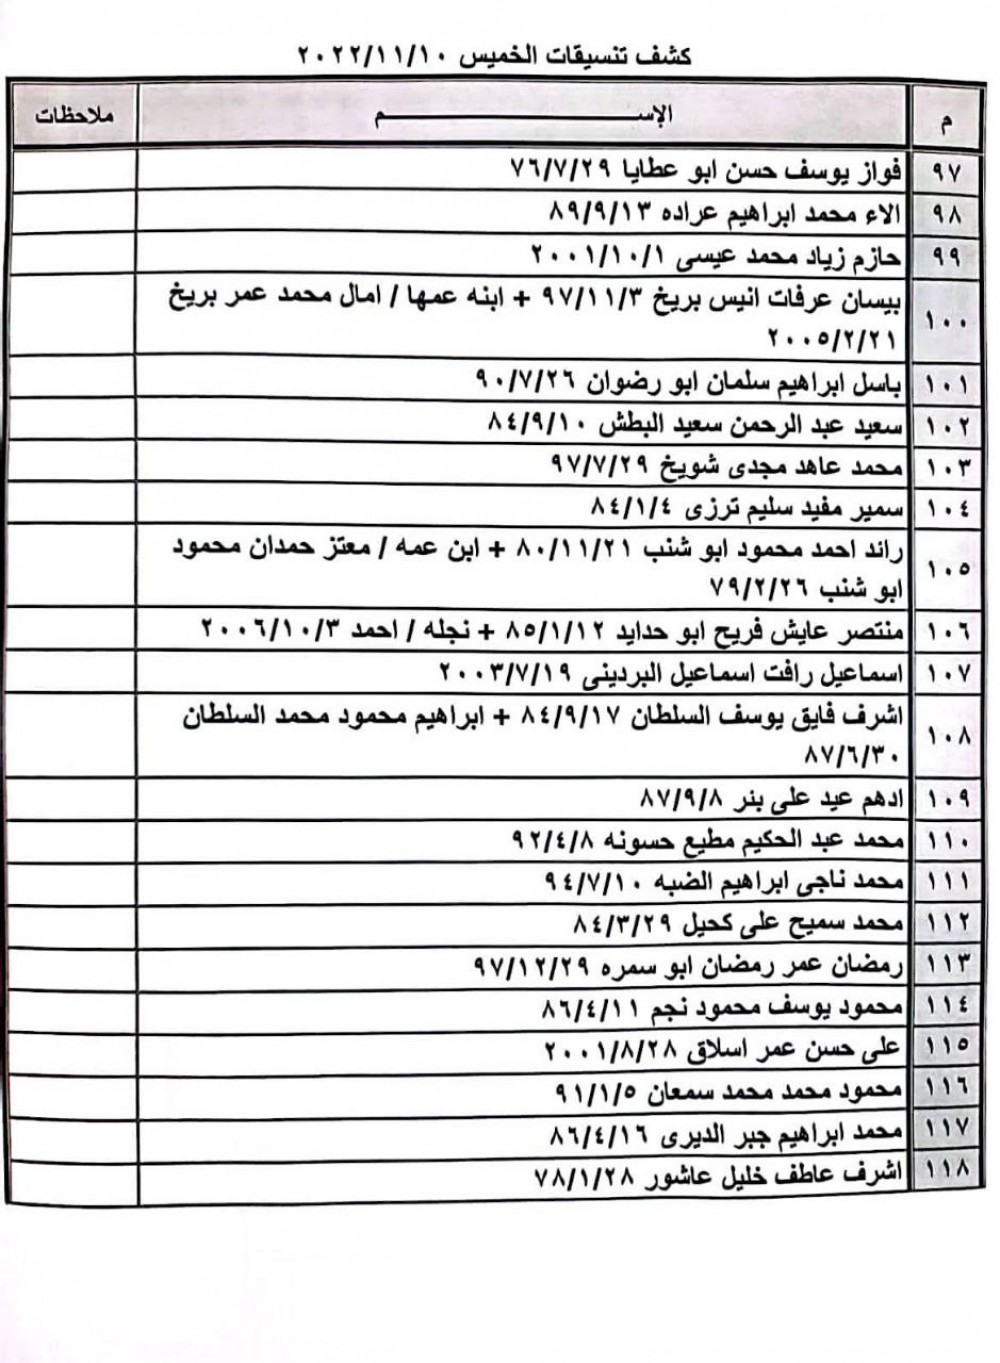 كشف تنسيقات الخميس ٢٠٢٢/١١/١٠
م الإســـــــــــم ملاحظات
٩٧ فواز يوسف حسن ابو عطايا ٧٦/٧/٢٩
٩٨ الاء محمد ابراهيم عراده ٨٩/٩/١٣
٩٩ حازم زياد محمد عيسى ٢٠٠١/١٠/١
١٠٠ بيسان عرفات انيس بريخ ٩٧/١١/٣ + ابنه عمها / امال محمد عمر بريخ
٢٠٠٥/٢/٢١
١٠١ باسل ابراهيم سلمان ابو رضوان ٩٠/٧/٢٦
١٠٢ سعيد عبد الرحمن سعيد البطش ٨٤/٩/١٠
١٠٣ محمد عاهد مجدى شويخ ٩٧/٧/٢٩
١٠٤ سمير مفيد سليم ترزى ٨٤/١/٤
١٠٥ رائد احمد محمود ابو شنب ٨٠/١١/٢١ + ابن عمه / معتز حمدان محمود
ابو شنب ٧٩/٢/٢٦
١٠٦ منتصر عايش فريح ابو حدايد ٨٥/١/١٢ + نجله / احمد ٢٠٠٦/١٠/٣
١٠٧ اسماعيل رافت اسماعيل البردينى ٢٠٠٣/٧/١٩
١٠٨ اشرف فايق يوسف السلطان ٨٤/٩/١٧ + ابراهيم محمود محمد السلطان
٨٧/٦/٣٠
١٠٩ ادهم عيد على بنر ٨٧/٩/٨
١١٠ محمد عبد الحكيم مطيع حسونه ٩٢/٤/٨
١١١ محمد ناجى ابراهيم الضبه ٩٤/٧/١٠
١١٢ محمد سميح على كحيل ٨٤/٣/٢٩
١١٣ رمضان عمر رمضان ابو سمره ٩٧/١٢/٢٩
١١٤ محمود يوسف محمود نجم ٨٦/٤/١١
١١٥ على حسن عمر اسلاق ٢٠٠١/٨/٢٨
١١٦ محمود محمد محمد سمعان ٩١/١/٥
١١٧ محمد ابراهيم جبر الديرى ٨٦/٤/١٦
١١٨ اشرف عاطف خليل عاشور ٧٨/١/٢٨